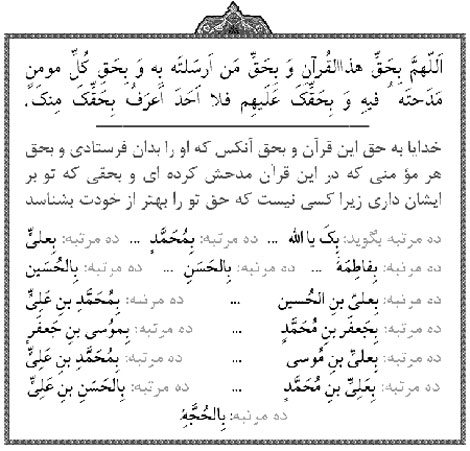 اَللّهمَّ بِحَقِّ هذاالقُرآنِ وَ بِحَقِّ مَن اَرسَلتَه بِه وَ بِحَقِ کُلِّ مومنٍ
مَدَحتَه ُ فیهِ وَ بِحَقِّکَ عَلَیهِم فلا اَحَدَ اَعرَفُ بِحَقِّکَ مِنکَ.
خدایا به حق این قرآن و بحق آنکس که او را بدان فرستادی و بحق
هر مؤ منی که در این قرآن مدحش کرده ای و بحقی که تو بر
ایشان داری زیرا کسی نیست که حق تو را بهتر از خودت بشناسد
ده مرتبه بگوید: بِکَ یا الله ... ده مرتبه: بِمُحَمَّدٍ ... ده مرتبه: بِعلیٍّ
ده مرتبه: بِفاطِمَهَ ... ده مرتبه: بِالحَسَنِ ... ده مرتبه: بِالحُسَین
ده مرتبه: بِعلیّ بنِ الحُسین ... ده مرتبه: بِمُحَمَّدِ بنِ عَلِیٍّ
ده مرتبه: بِجَعفَرِ بنِ مُحَمَّدٍ ... ده مرتبه: بِموُسی بنِ جَعفَرٍ
ده مرتبه: بِعلیِّ بنِ مُوسی ... ده مرتبه: بِمُحَمَّدِ بنِ عَلِیٍّ
ده مرتبه: بِعَلِیِّ بنِ مُحَمَّدٍ ... ده مرتبه: بِالحَسَنِ بنِ عَلِیٍّ
ده مرتبه: بِالحُجَّهِ